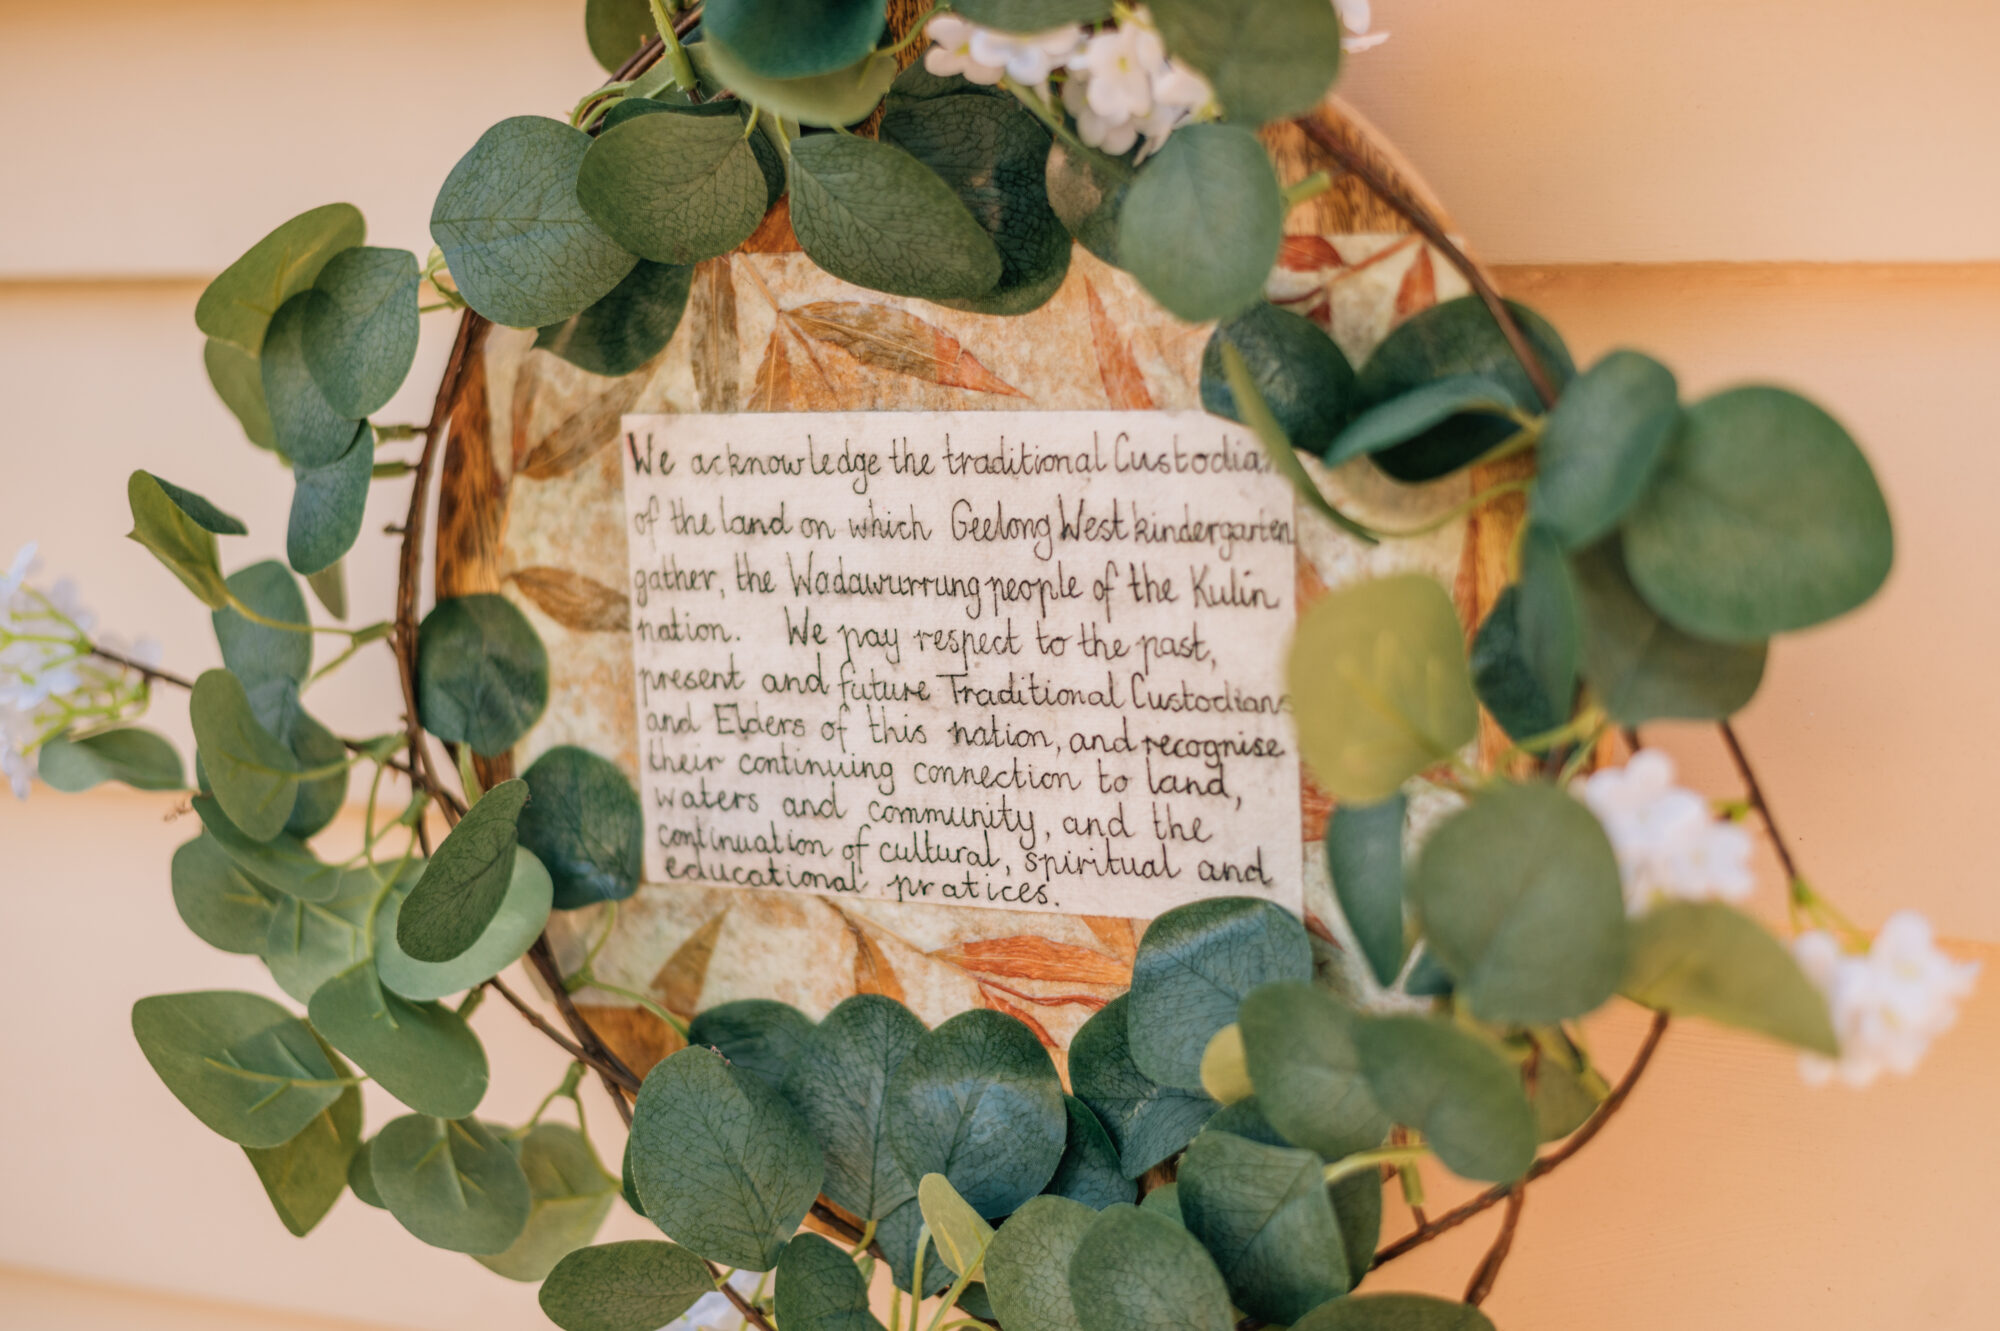 We acknowledge the traditional Custodian
of the land on which Geelong West kindergarten
gather, the Wadawurrung people of the Kulin
nation. We pay respect to the past,
present and future Traditional Custodians
and Elders of this nation, and recognise
their continuing connection to land,
waters and community, and the
continuation of cultural, spiritual and
educational pratices.